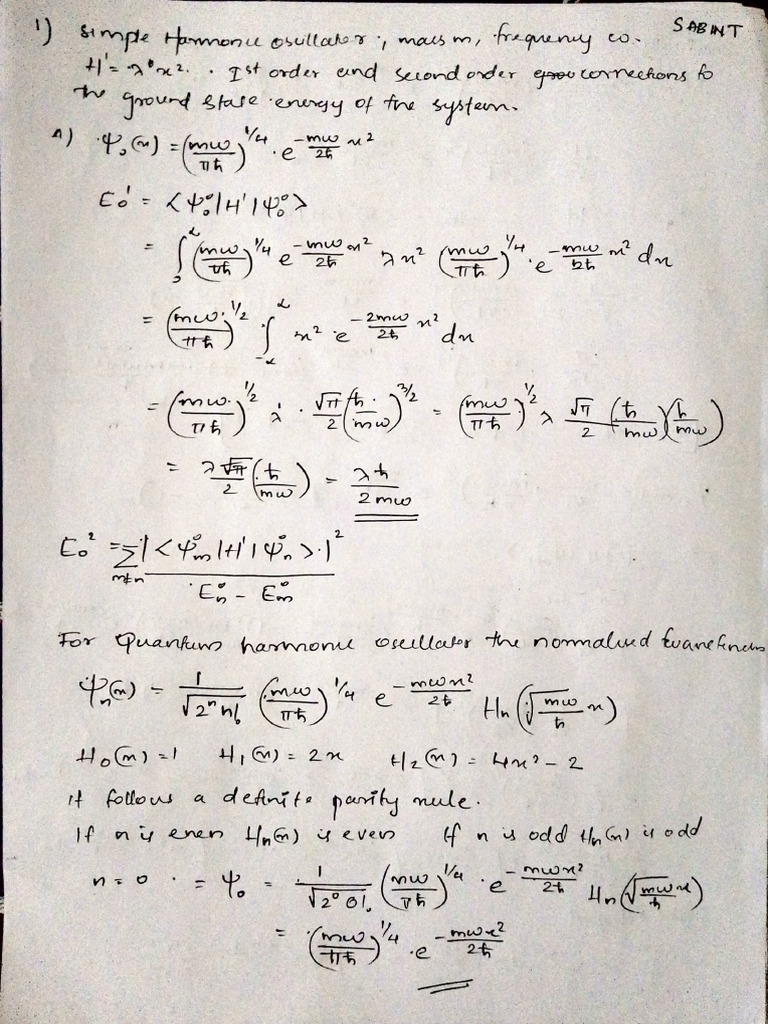 SABINT
1) Simple Harmonic oscillator, mass m, frequency ω.
H' = λx². Ist order and second order corrections to
the ground state energy of the system.
A) ψ₀(x) = (mω/πħ)^1/4 . e^(-mω/2ħ x²)
E₀¹ = <ψ₀⁰|H'|ψ₀⁰>
= ∫ (mω/πħ)^1/4 e^(-mω/2ħ x²) λx² (mω/πħ)^1/4 . e^(-mω/2ħ x²) dx
= (mω/πħ)^1/2 ∫_-∞^∞ x² e^(-2mω/2ħ x²) dx
= (mω/πħ)^1/2 λ . √π/2 (ħ/mω)^3/2 = (mω/πħ)^1/2 λ √π/2 (ħ/mω)(ħ/mω)
= λ√π/2 (ħ/mω) = λħ/2mω
E₀² = Σ_m≠n |<ψₘ⁰|H'|ψₙ⁰>|² / Eₙ⁰ - Eₘ⁰
For Quantum harmonic oscillator the normalized
ψₙ(x) = 1/√(2ⁿn!) (mω/πħ)^1/4 e^(-mωx²/2ħ) Hₙ(√(mω/ħ) x)
H₀(x) = 1 H₁(x) = 2x H₂(x) = 4x² - 2
it follows a definite parity rule.
If n is even Hₙ(x) is even If n is odd Hₙ(x) is odd
n = 0 . = ψ₀ = 1/√(2⁰0!) (mω/πħ)^1/4 . e^(-mωx²/2ħ) Hₙ(√(mω/ħ) x)
= (mω/πħ)^1/4 . e^(-mωx²/2ħ)